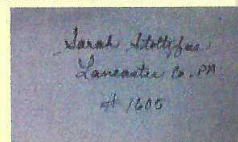 Sarah Stoltzfus
Lancaster Co. PA
# 1605